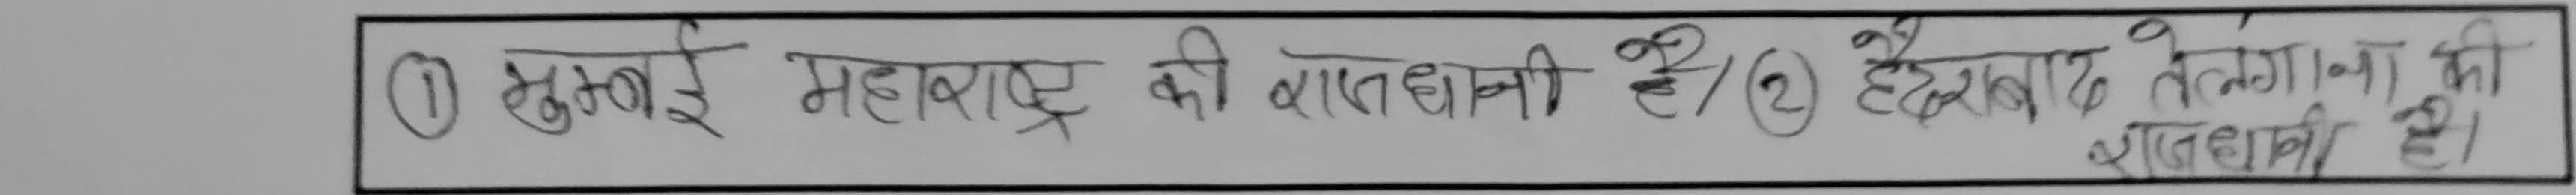 ① मुम्बई महाराष्ट्र की राजधानी है। ② हैदराबाद तेलंगाना की
राजधानी है।